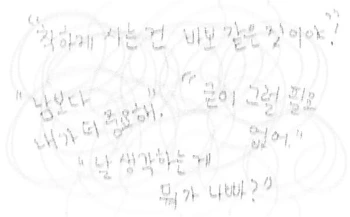 "착하게 사는 건 바보 같은 짓이야!"
"남보다
내가 더 중요해."
"굳이 그럴 필요
없어."
"날 생각하는 게
뭐가 나빠?"